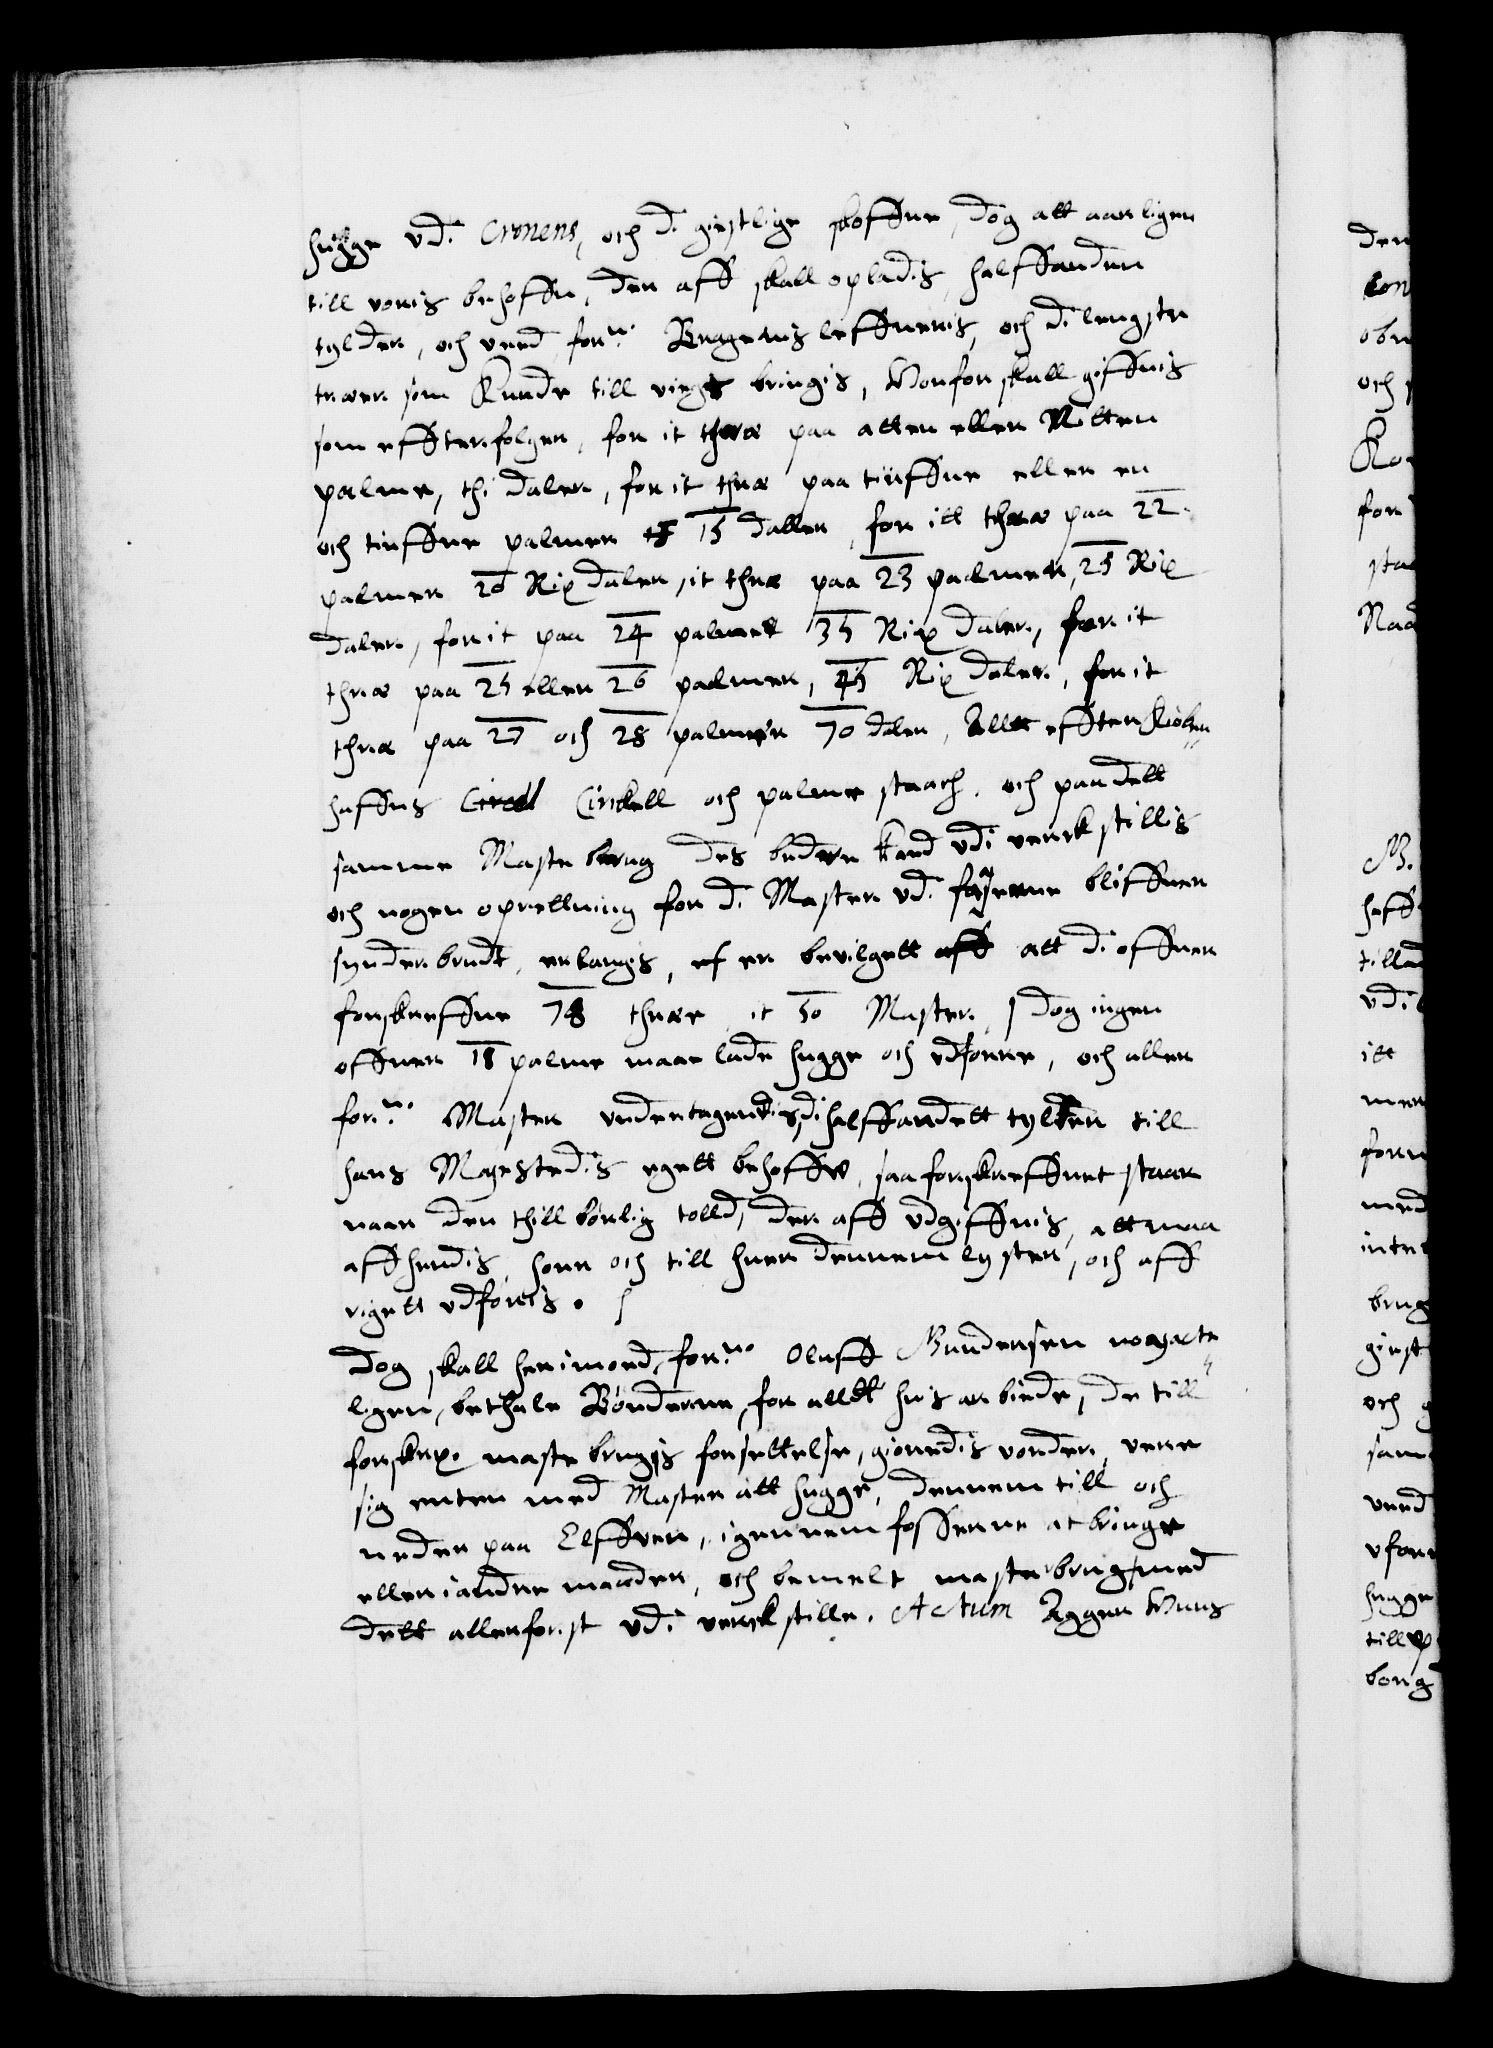 hugge udi Cronens, och di giestlige skoffue, dog att aarligen
till voris behoffu, der aff skall opladis, halffanden
tylder, och ved forne Bragernis leffueris, och di lengste
træer som kunde till veigs bringis, Huorfor skall giffuis
som effterfolger, for it thræ paa atten eller Nitten
palme, thi daler, for it thræ paa tiuffue eller en
och tiuffue palmer 15 daller, for itt thræ paa 22
palmer 20 Rix daler, it thræ paa 23 palmer, 25 Rix
daler, for it paa 24 palmer 35 Rix daler, for it
thræ paa 25 eller 26 palmer, 45 Rix daler, for it
thræ paa 27 och 28 palmer 70 daler, Allt effter Kiøben
haffns Circkell och palme staach, och paa dett
samme Maste brug des bedre kand udi verck stillis
och nogen oprettning for di Master udi fosserne bliffuer
synder brudt, erlangis, er bevilgett att di offuer
forskreffne 78 thræe it 50 Master, dog ingen
offuer 18 palme maae lade hugge och udførre, och aller
forne Master undertagendis di halffandett tylter till
hans Mayestedis egett behoff, saa forskreffuet staar
naar den thill børlig tolld, der aff udgiffuis, att maa
affhendis, hore och till huer dennem lyster, och aff
rigett udføris.
dog skall herimod, forne Oluff Gundersen nøyacte
ligen, bethale Bønderne, for allt huis arbiede, de till
forskrne maste brugis forsettelse, giorendis vorder, vere
sig enten med Master att hugge, dennem till och
neder paa Elffuen, igennem fosserne at bringe
eller i andre maader, och bemelt mastebrug med
dett allerførst udi verck stille. Actum Aggershuus